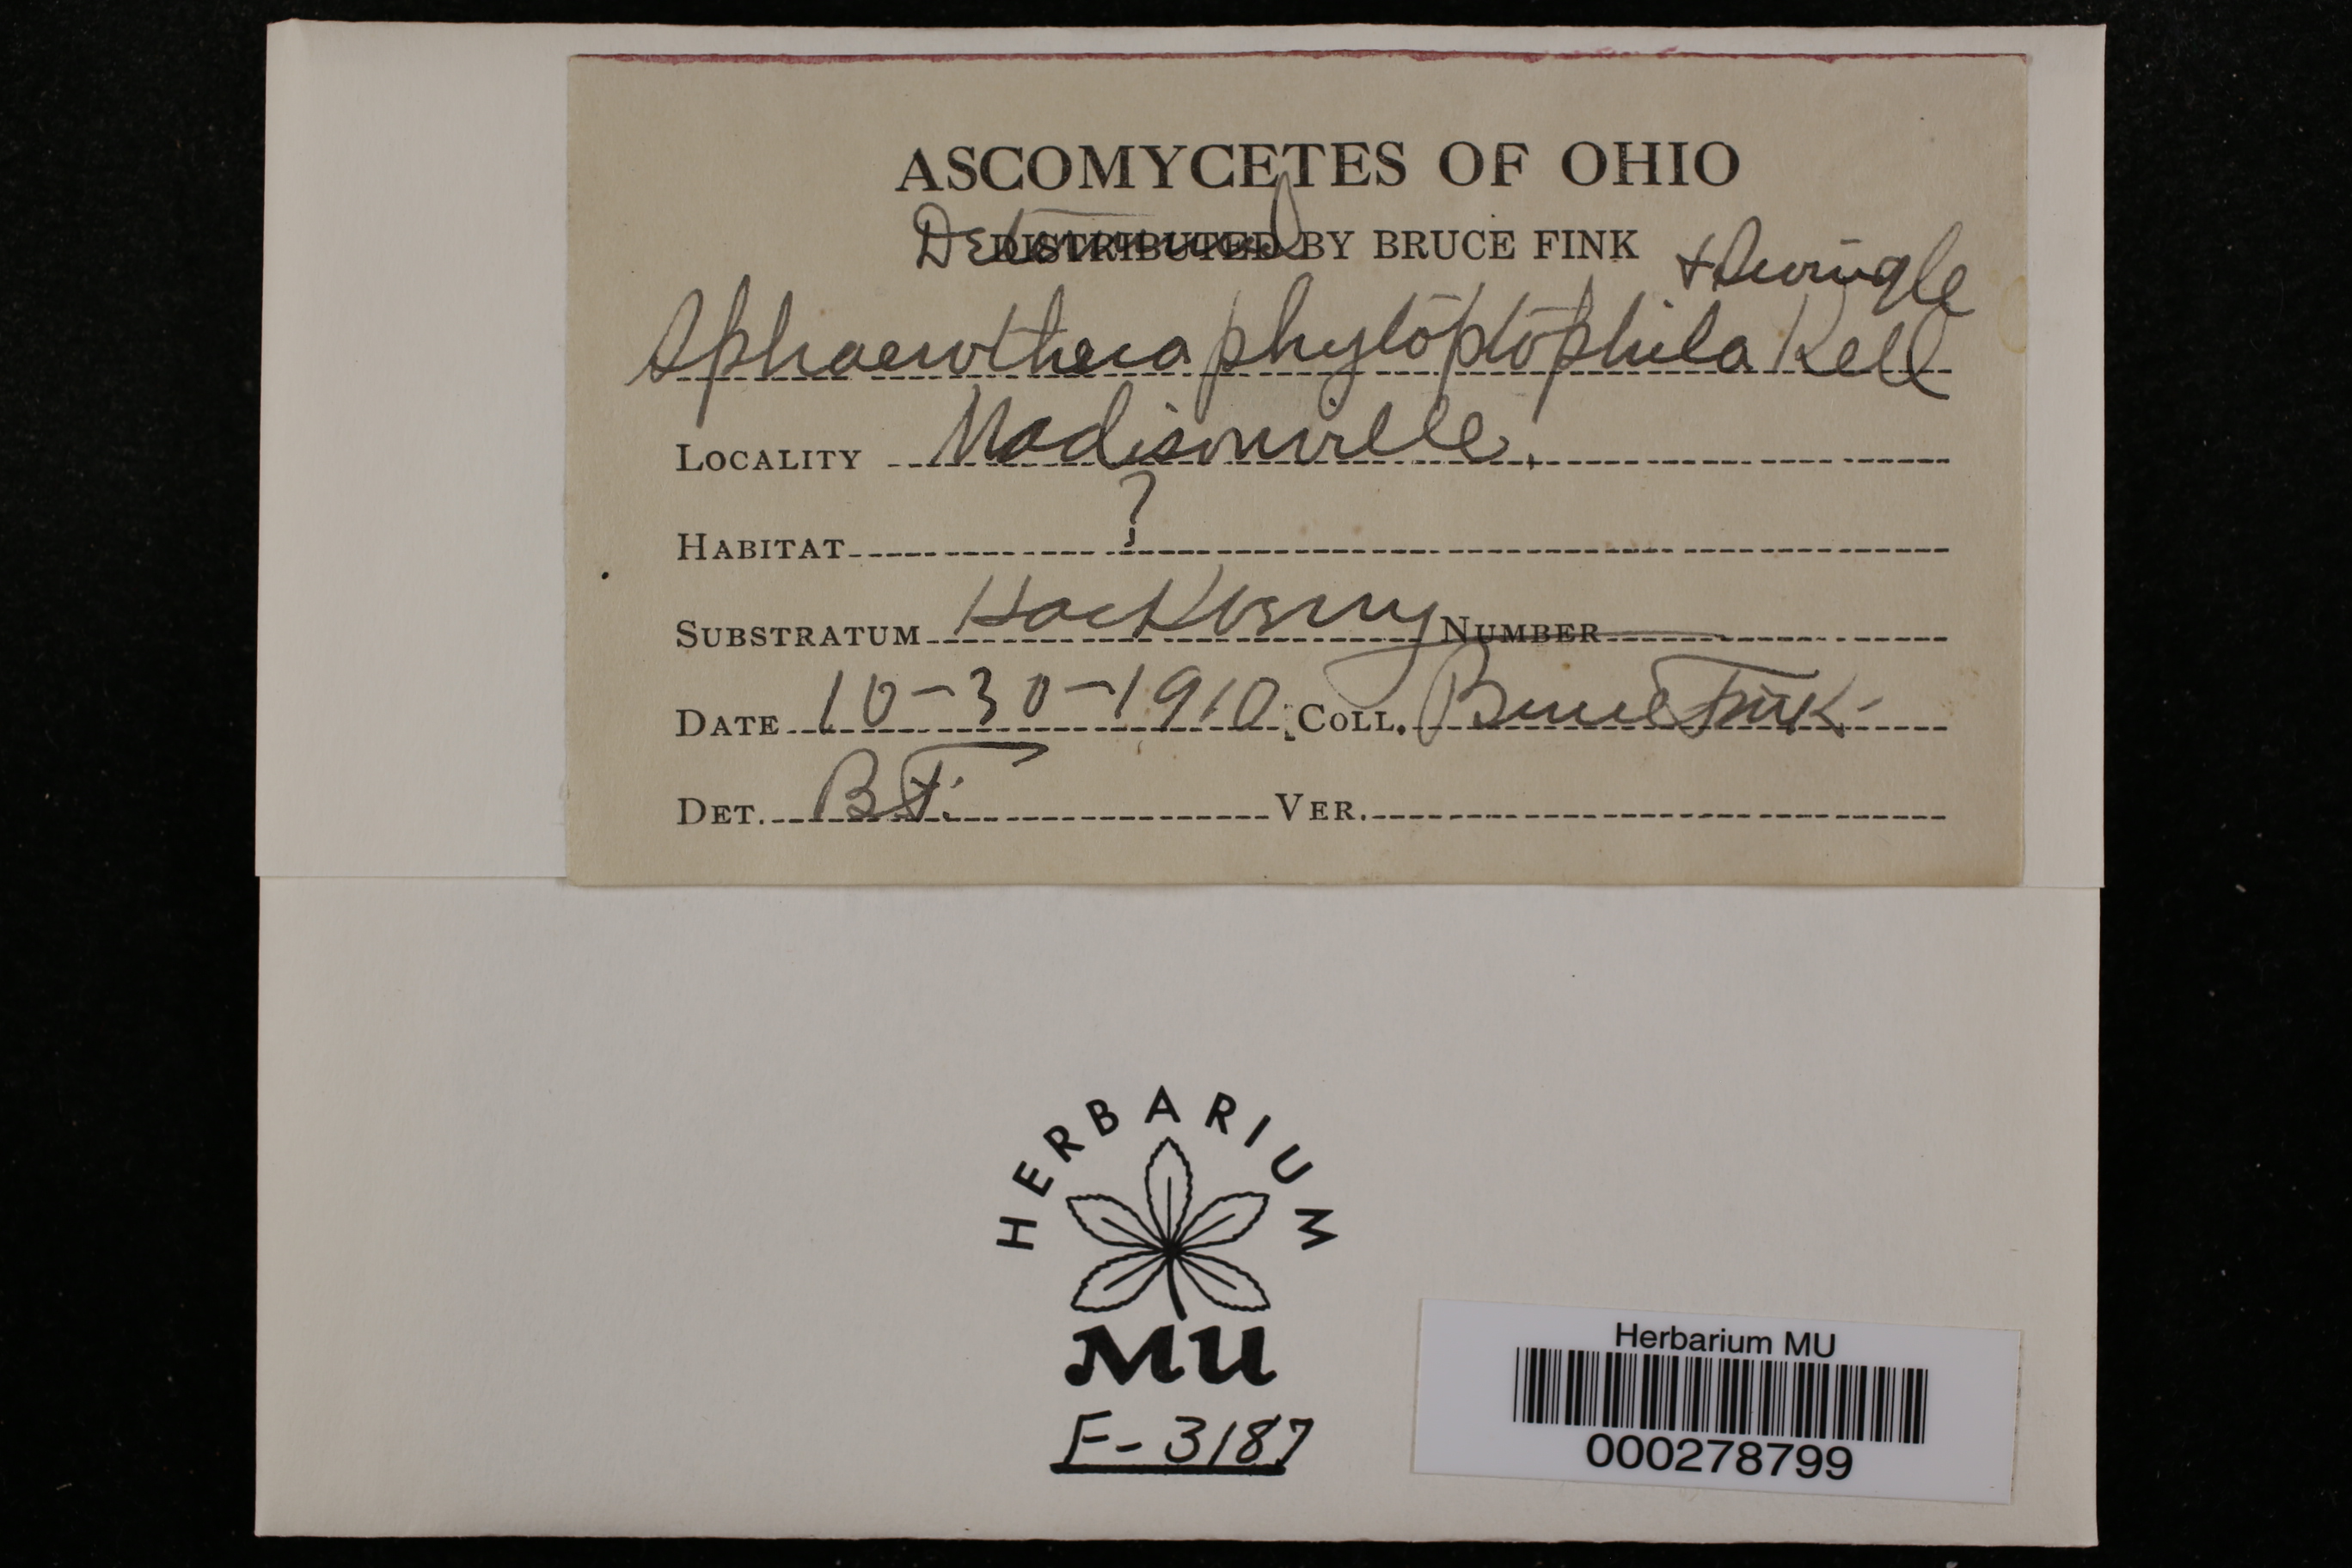 ASCOMYCETES OF OHIO
Determined DISTRIBUTED BY BRUCE FINK
Sphaerotheca phytoptophila Kell + Swingle
LOCALITY Madisonville.
HABITAT ?
SUBSTRATUM Hackberry NUMBER
DATE 10-30-1910 COLL. Bruce Fink
DET. B.F. VER.
HERBARIUM
MU
F-3187
Herbarium MU
000278799